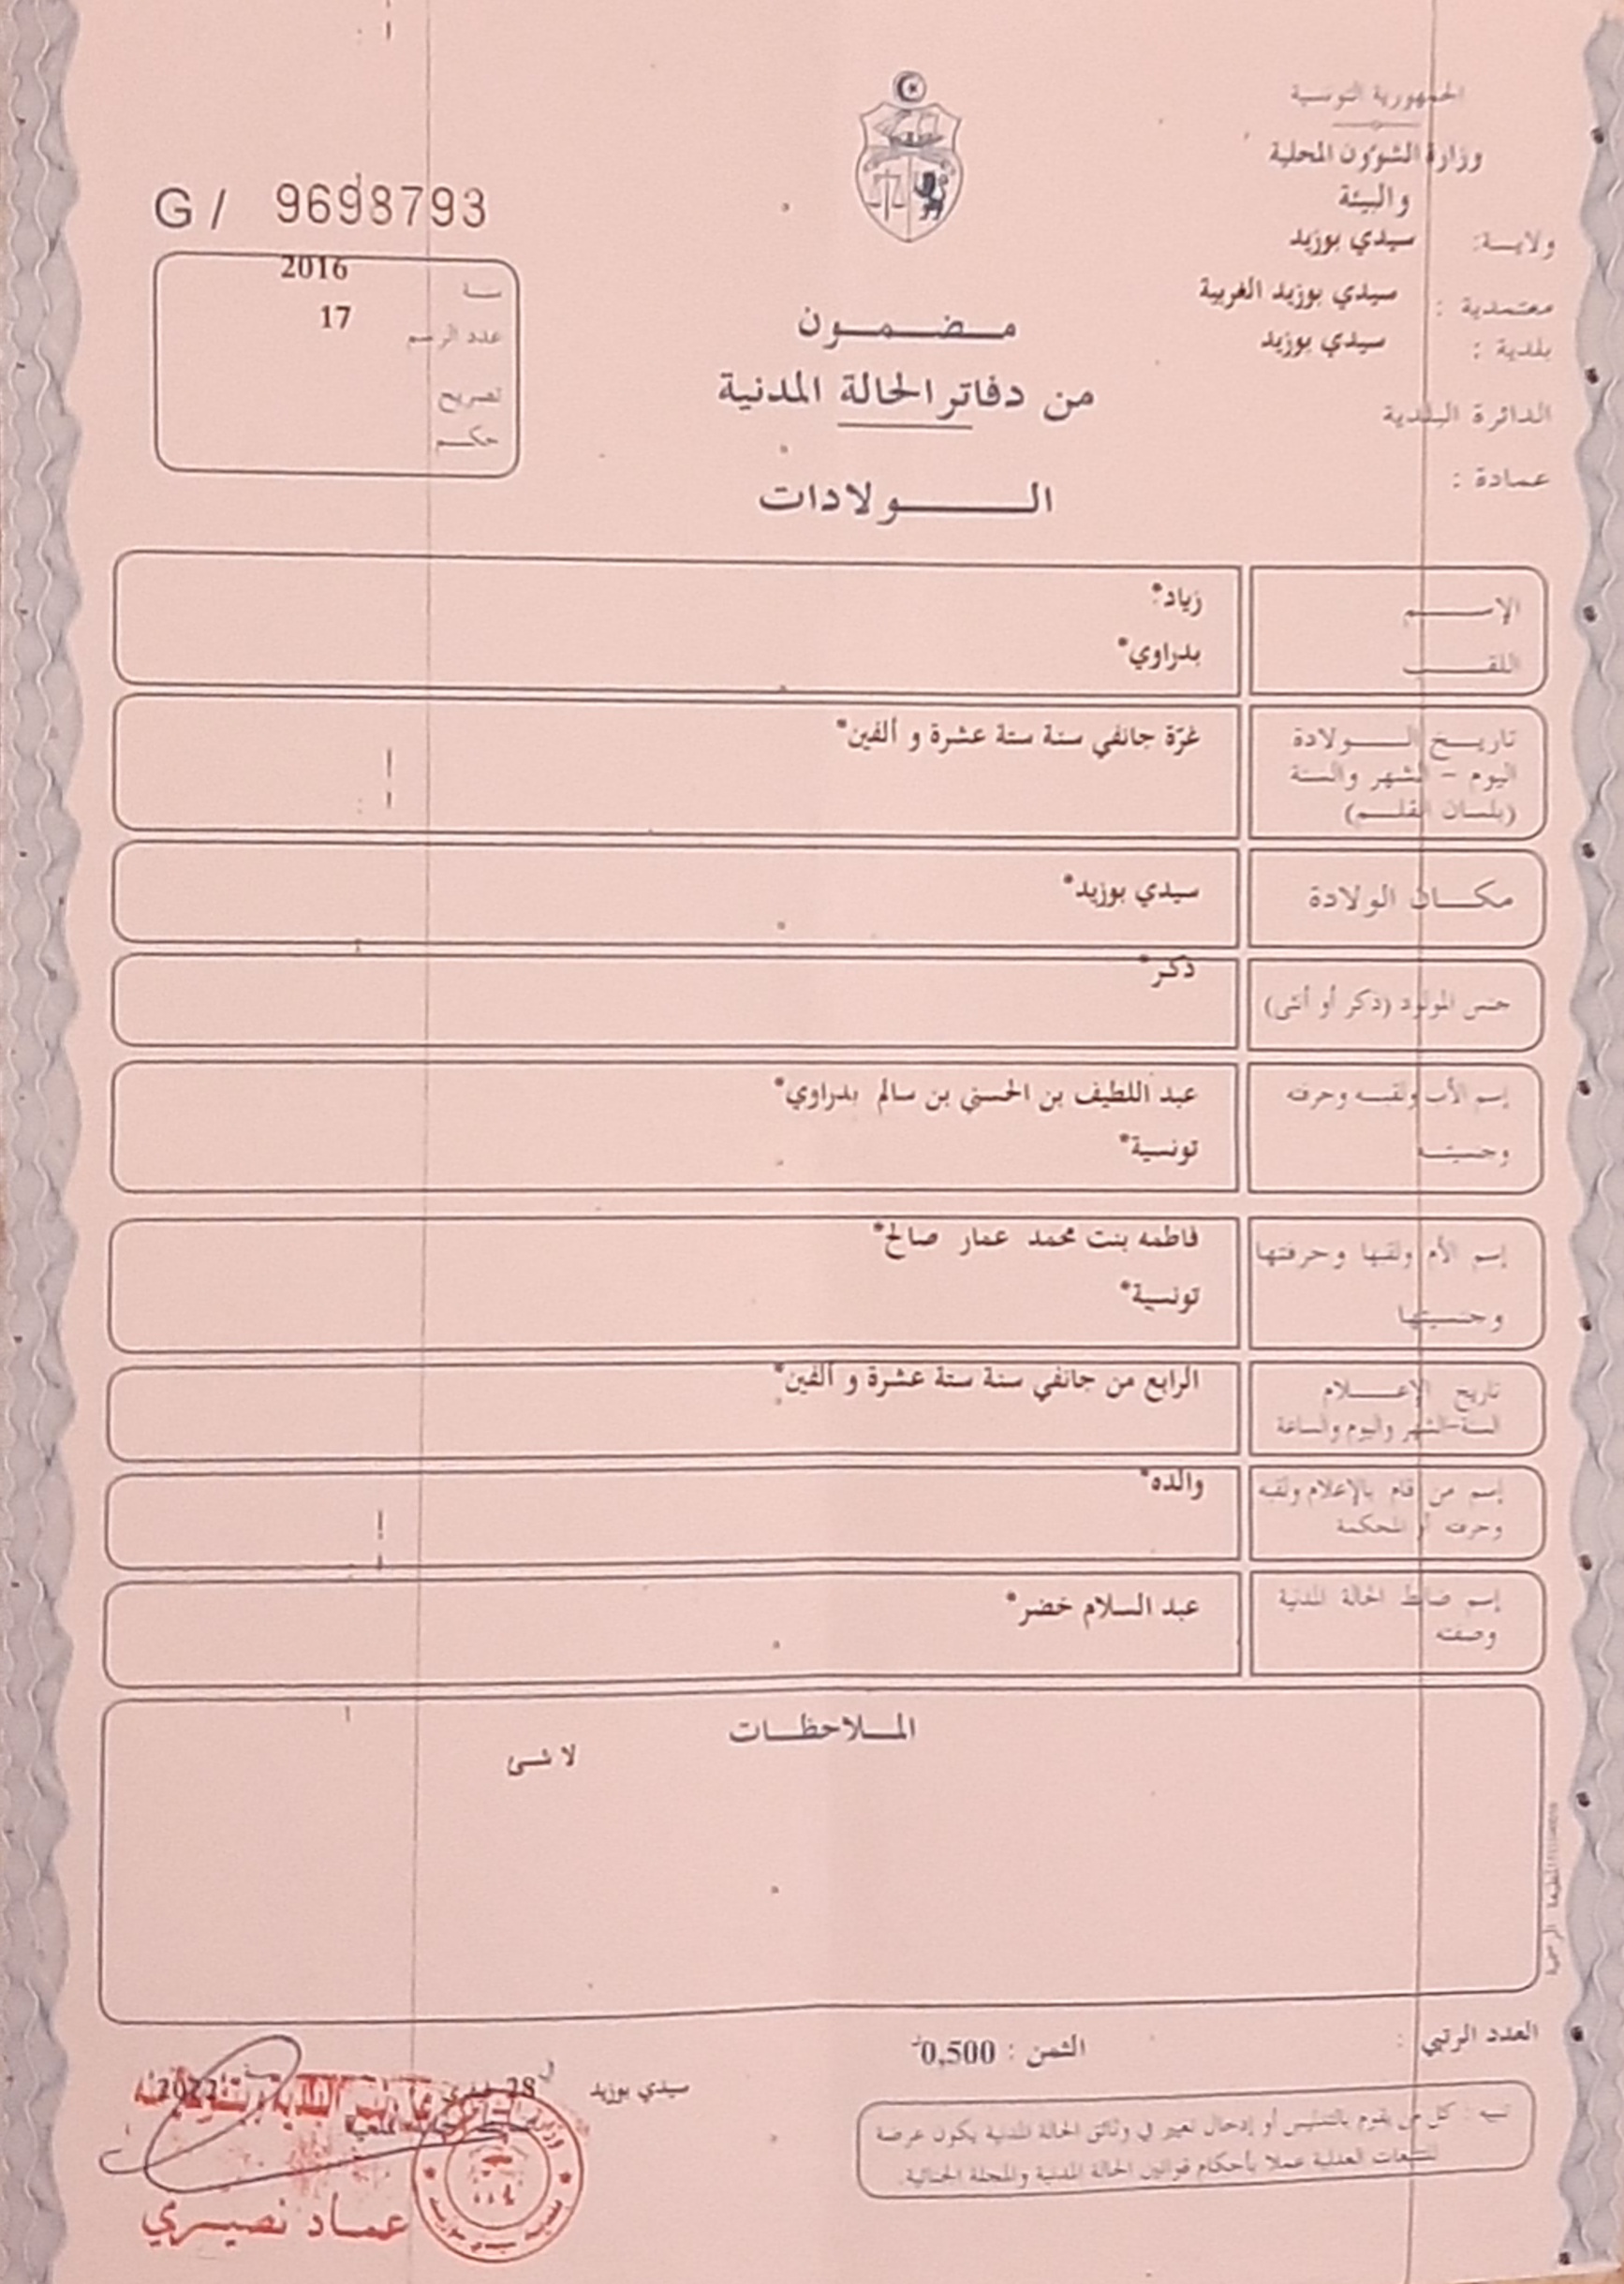 الجمهورية التونسية
وزارة الشؤون المحلية
والبيئة
ولايـة: سيدي بوزيد
معتمدية : سيدي بوزيد الغربية
بلدية : سيدي بوزيد
الدائرة البلدية
عمادة :
G / 9698793
سنة 2016
عدد الرسم 17
تصريح
حكم
مضمون
من دفاتر الحالة المدنية
الولادات
الإسم
زياد*
اللقب
بدراوي*
تاريخ الولادة
اليوم - الشهر والسنة
(بلسان القلم)
غرّة جانفي سنة ستة عشرة و ألفين*
مكان الولادة
سيدي بوزيد*
جنس المولود (ذكر أو أنثى)
ذكر*
إسم الأب ولقبه وحرفته
عبد اللطيف بن الحسني بن سالم بدراوي*
وجنسيته
تونسية*
إسم الأم ولقبها وحرفتها
فاطمه بنت محمد عمار صالح*
وجنسيتها
تونسية*
تاريخ الإعلام
السنة-الشهر واليوم والساعة
الرابع من جانفي سنة ستة عشرة و ألفين*
إسم من قام بالإعلام ولقبه
وحرفته أو المحكمة
والده*
إسم ضابط الحالة المدنية
وصفته
عبد السلام خضر*
الملاحظات
لا شئ
العدد الرتبي :
الثمن : 0,500
تنبيه : كل من يقوم بالتدليس أو إدخال تغيير في وثائق الحالة المدنية يكون عرضة
للتتبعات العدلية عملا بأحكام قوانين الحالة المدنية والمجلة الجنائية.
سيدي بوزيد في 28 2022
عماد نصيري
المطبعة الرسمية